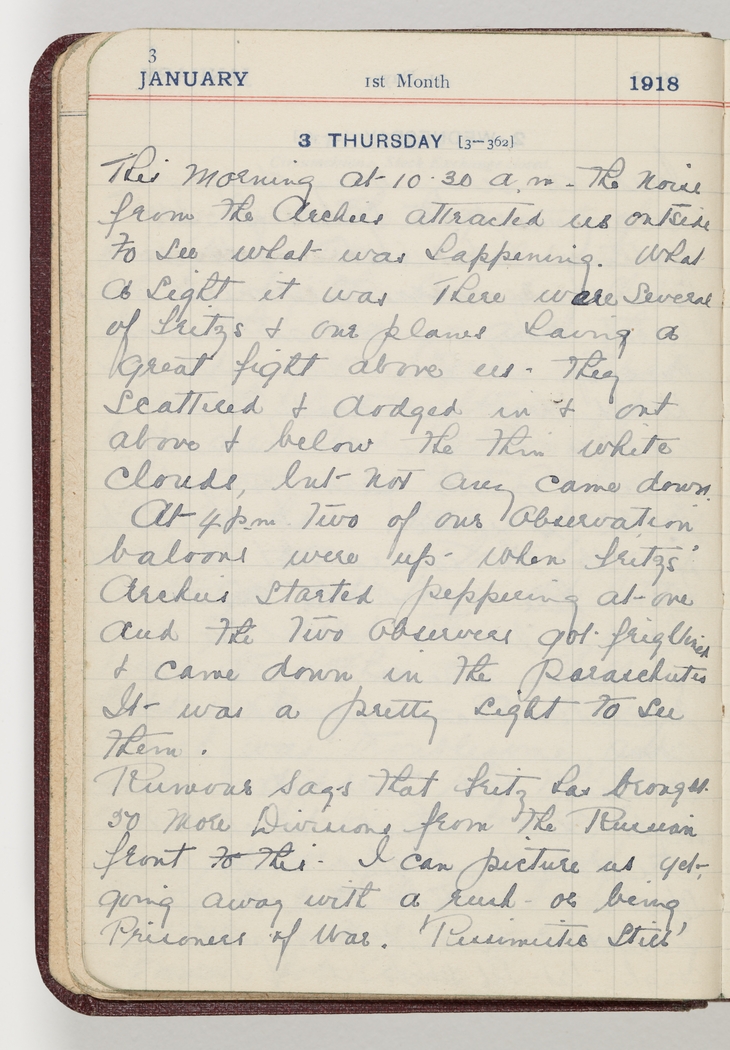 3
JANUARY 1st Month 1918
3 THURSDAY [3—362]
This Morning at 10.30 a.m. The noise
from the Archies attracted us outside
to see what was happening. What
a sight it was There were several
of Fritzs & our planes having a
great fight above us. They
scattered & dodged in & out
above & below the thin white
clouds, but not any came down.
At 4 pm Two of our Observation
baloons were up - when Fritzs'
Archies started peppering at one
and the Two Observers got frightned
& came down in the parachutes
It was a pretty sight to see
them.
Rumours says that Fritz has brought
50 more Divisions from the Russian
front to this - I can picture us yet,
going away with a rush - or being
Prisoners of War. 'Pessimistic Still'